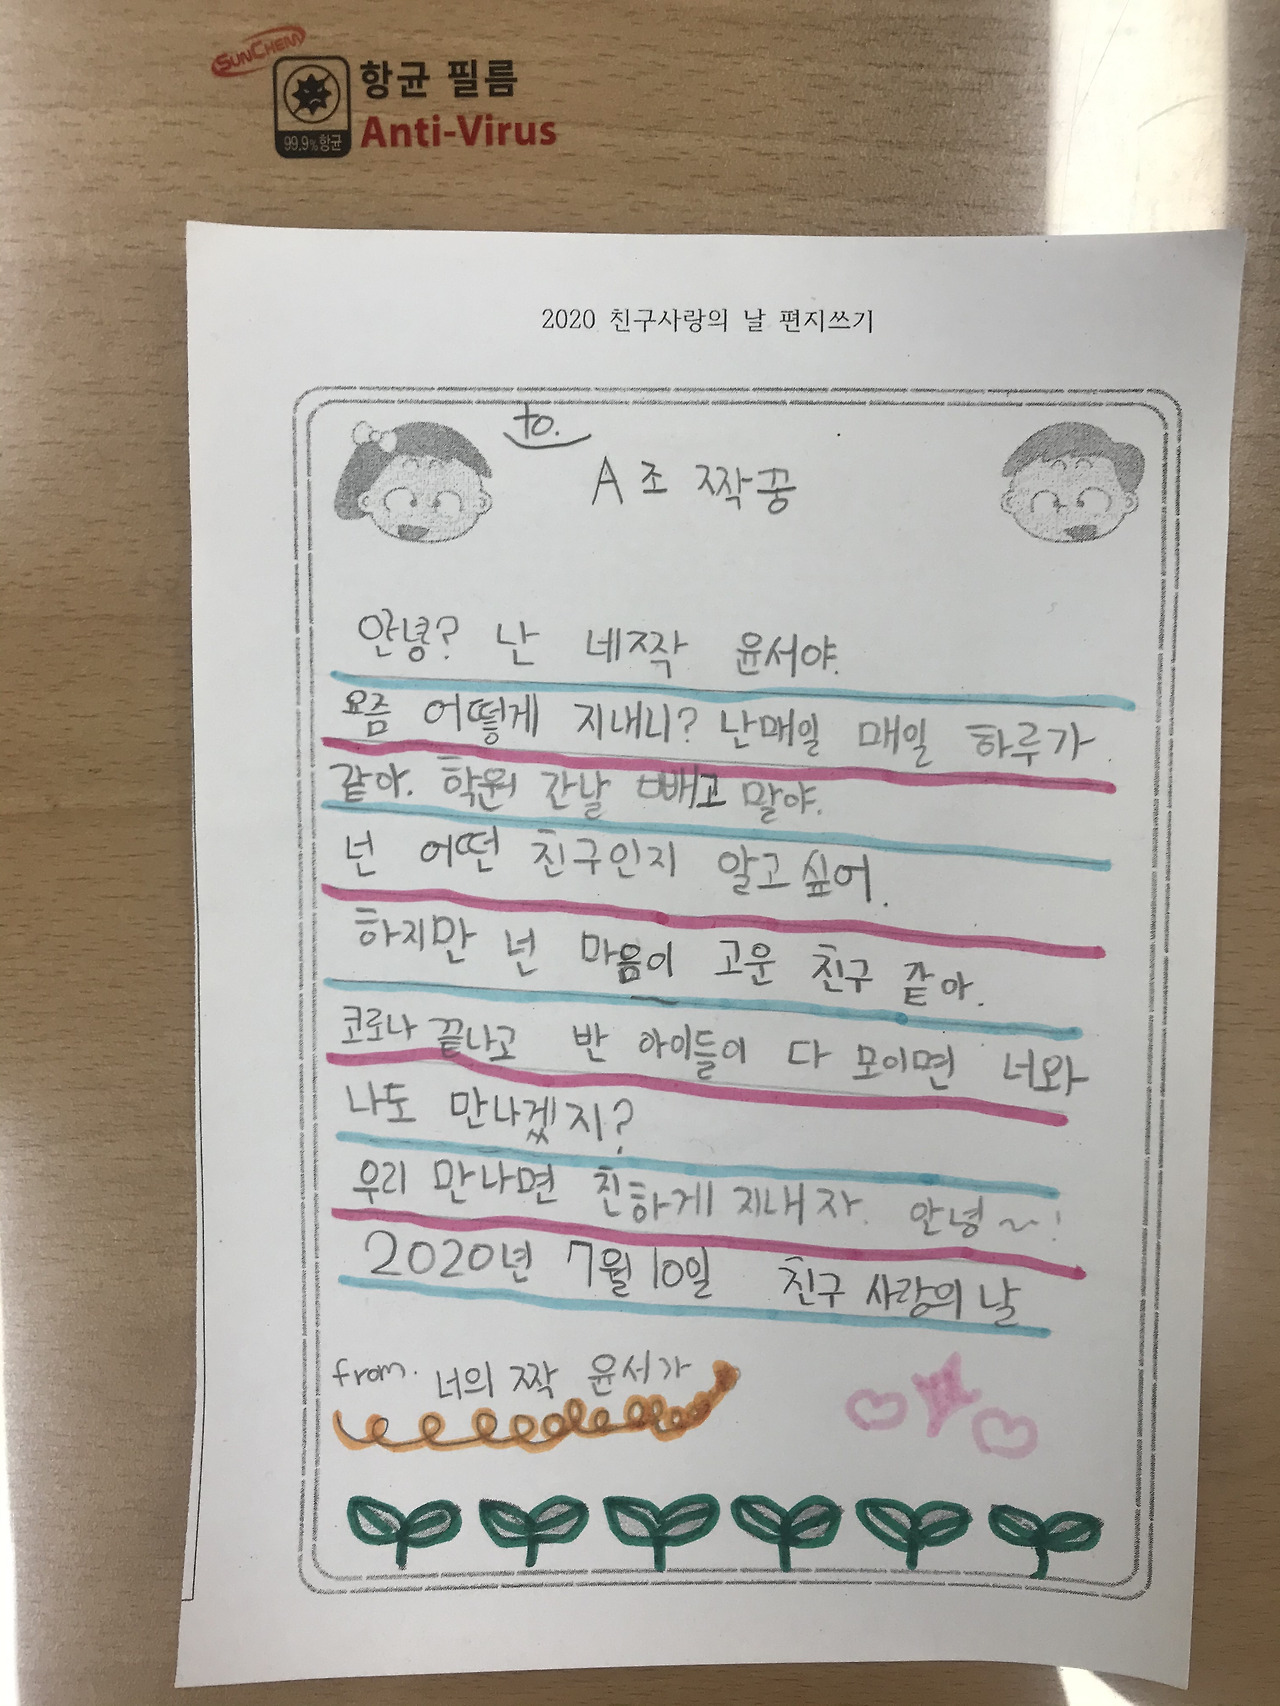 SUNCHEM
항균 필름
99.9%항균
Anti-Virus
2020 친구사랑의 날 편지쓰기
to.
A조 짝꿍
안녕? 난 네짝 윤서야.
요즘 어떻게 지내니? 난매일 매일 하루가
같아. 학원 간날 빼고 말야.
넌 어떤 친구인지 알고싶어.
하지만 넌 마음이 고운 친구 같아.
코로나 끝나고 반 아이들이 다 모이면 너와
나도 만나겠지?
우리 만나면 친하게 지내자. 안녕~!
2020년 7월 10일 친구 사랑의 날
from. 너의 짝 윤서가